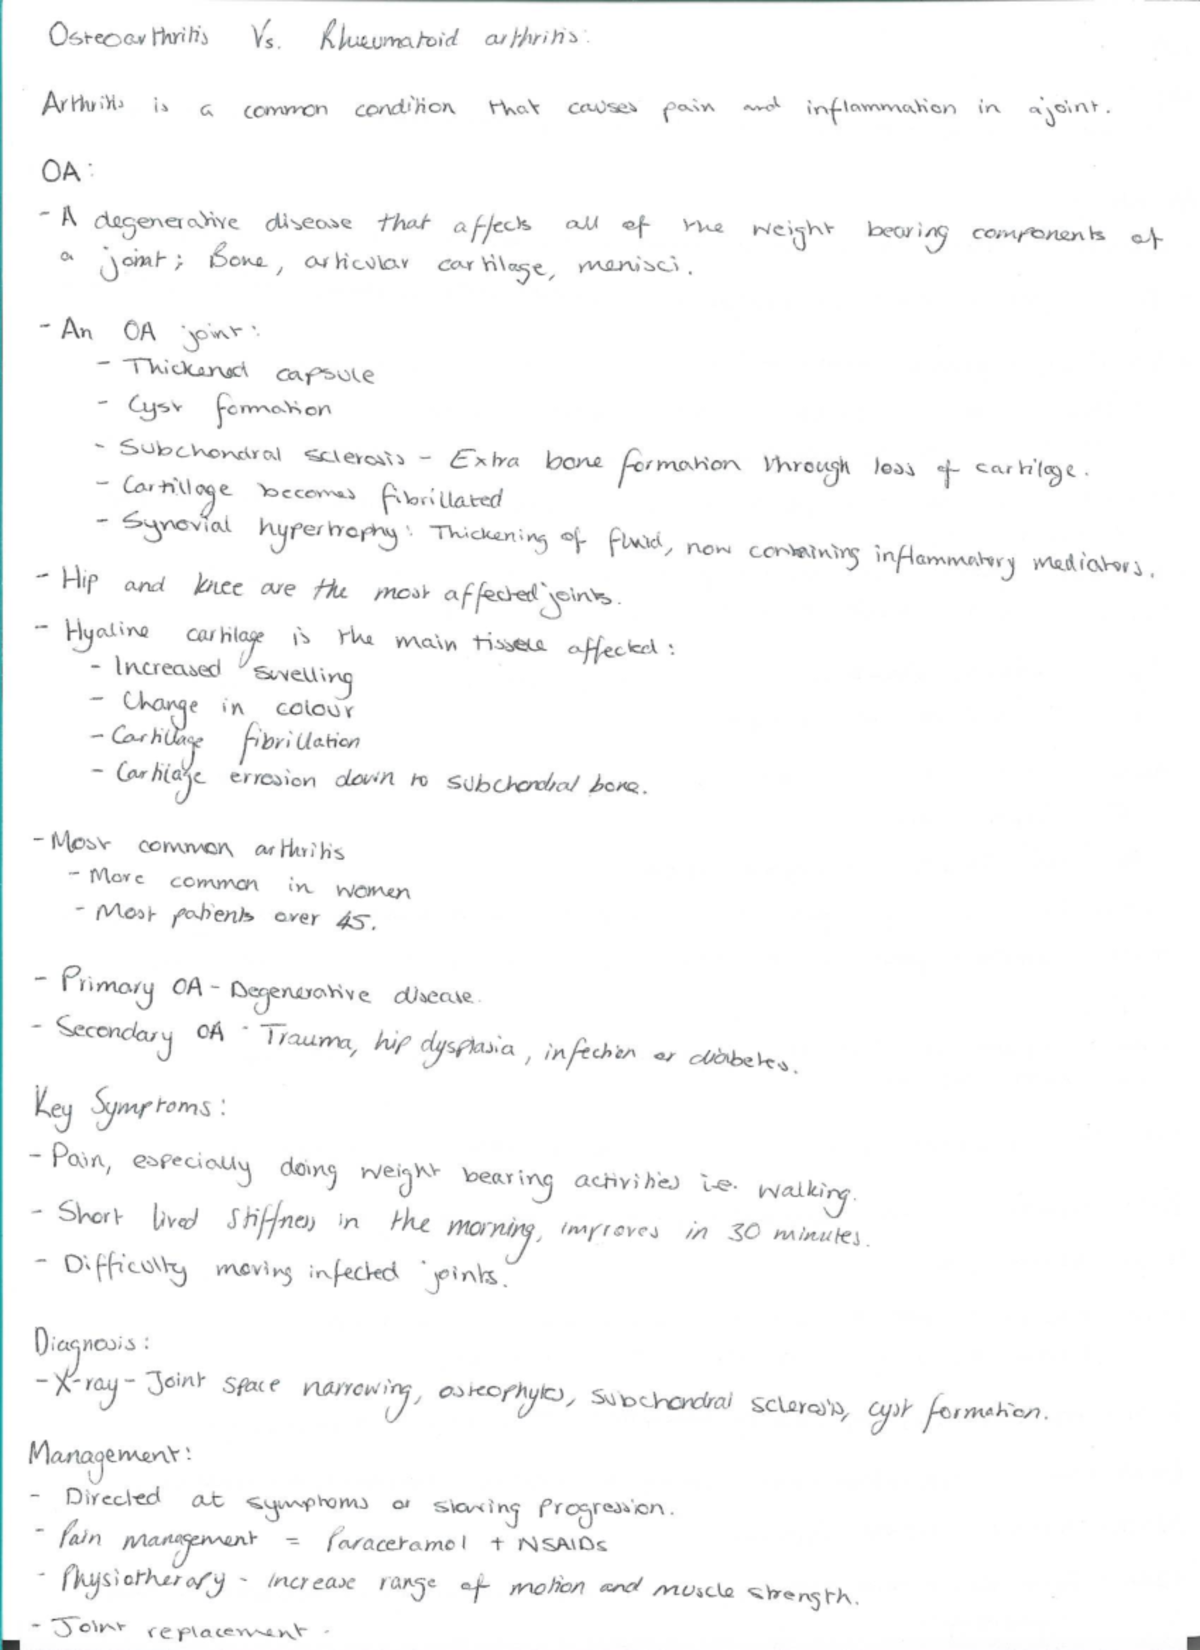 Osteoarthritis Vs. Rheumatoid arthritis:
Arthritis is a common condition that causes pain and inflammation in a joint.
OA:
- A degenerative disease that affects all of the weight bearing components of
a joint; Bone, articular cartilage, menisci.
- An OA joint:
- Thickened capsule
- Cyst formation
- Subchondral sclerosis - Extra bone formation through loss of cartilage.
- Cartillage becomes fibrillated
- Synovial hypertrophy: Thickening of fluid, now containing inflammatory mediators.
- Hip and knee are the most affected joints.
- Hyaline cartilage is the main tissue affected:
- Increased swelling
- Change in colour
- Cartillage fibrillation
- Cartilage errosion down to subchondral bone.
- Most common arthritis
- More common in women
- Most patients over 45.
- Primary OA - Degenerative disease.
- Secondary OA - Trauma, hip dysplasia, infection or diabetes.
Key Symptoms:
- Pain, especially doing weight bearing activities i.e. walking.
- Short lived stiffness in the morning, improves in 30 minutes.
- Difficulty moving infected joints.
Diagnosis:
- X-ray - Joint space narrowing, osteophytes, subchondral sclerosis, cyst formation.
Management:
- Directed at symptoms or slowing progression.
- Pain management = Paracetamol + NSAIDs
- Physiotherapy - increase range of motion and muscle strength.
- Joint replacement.